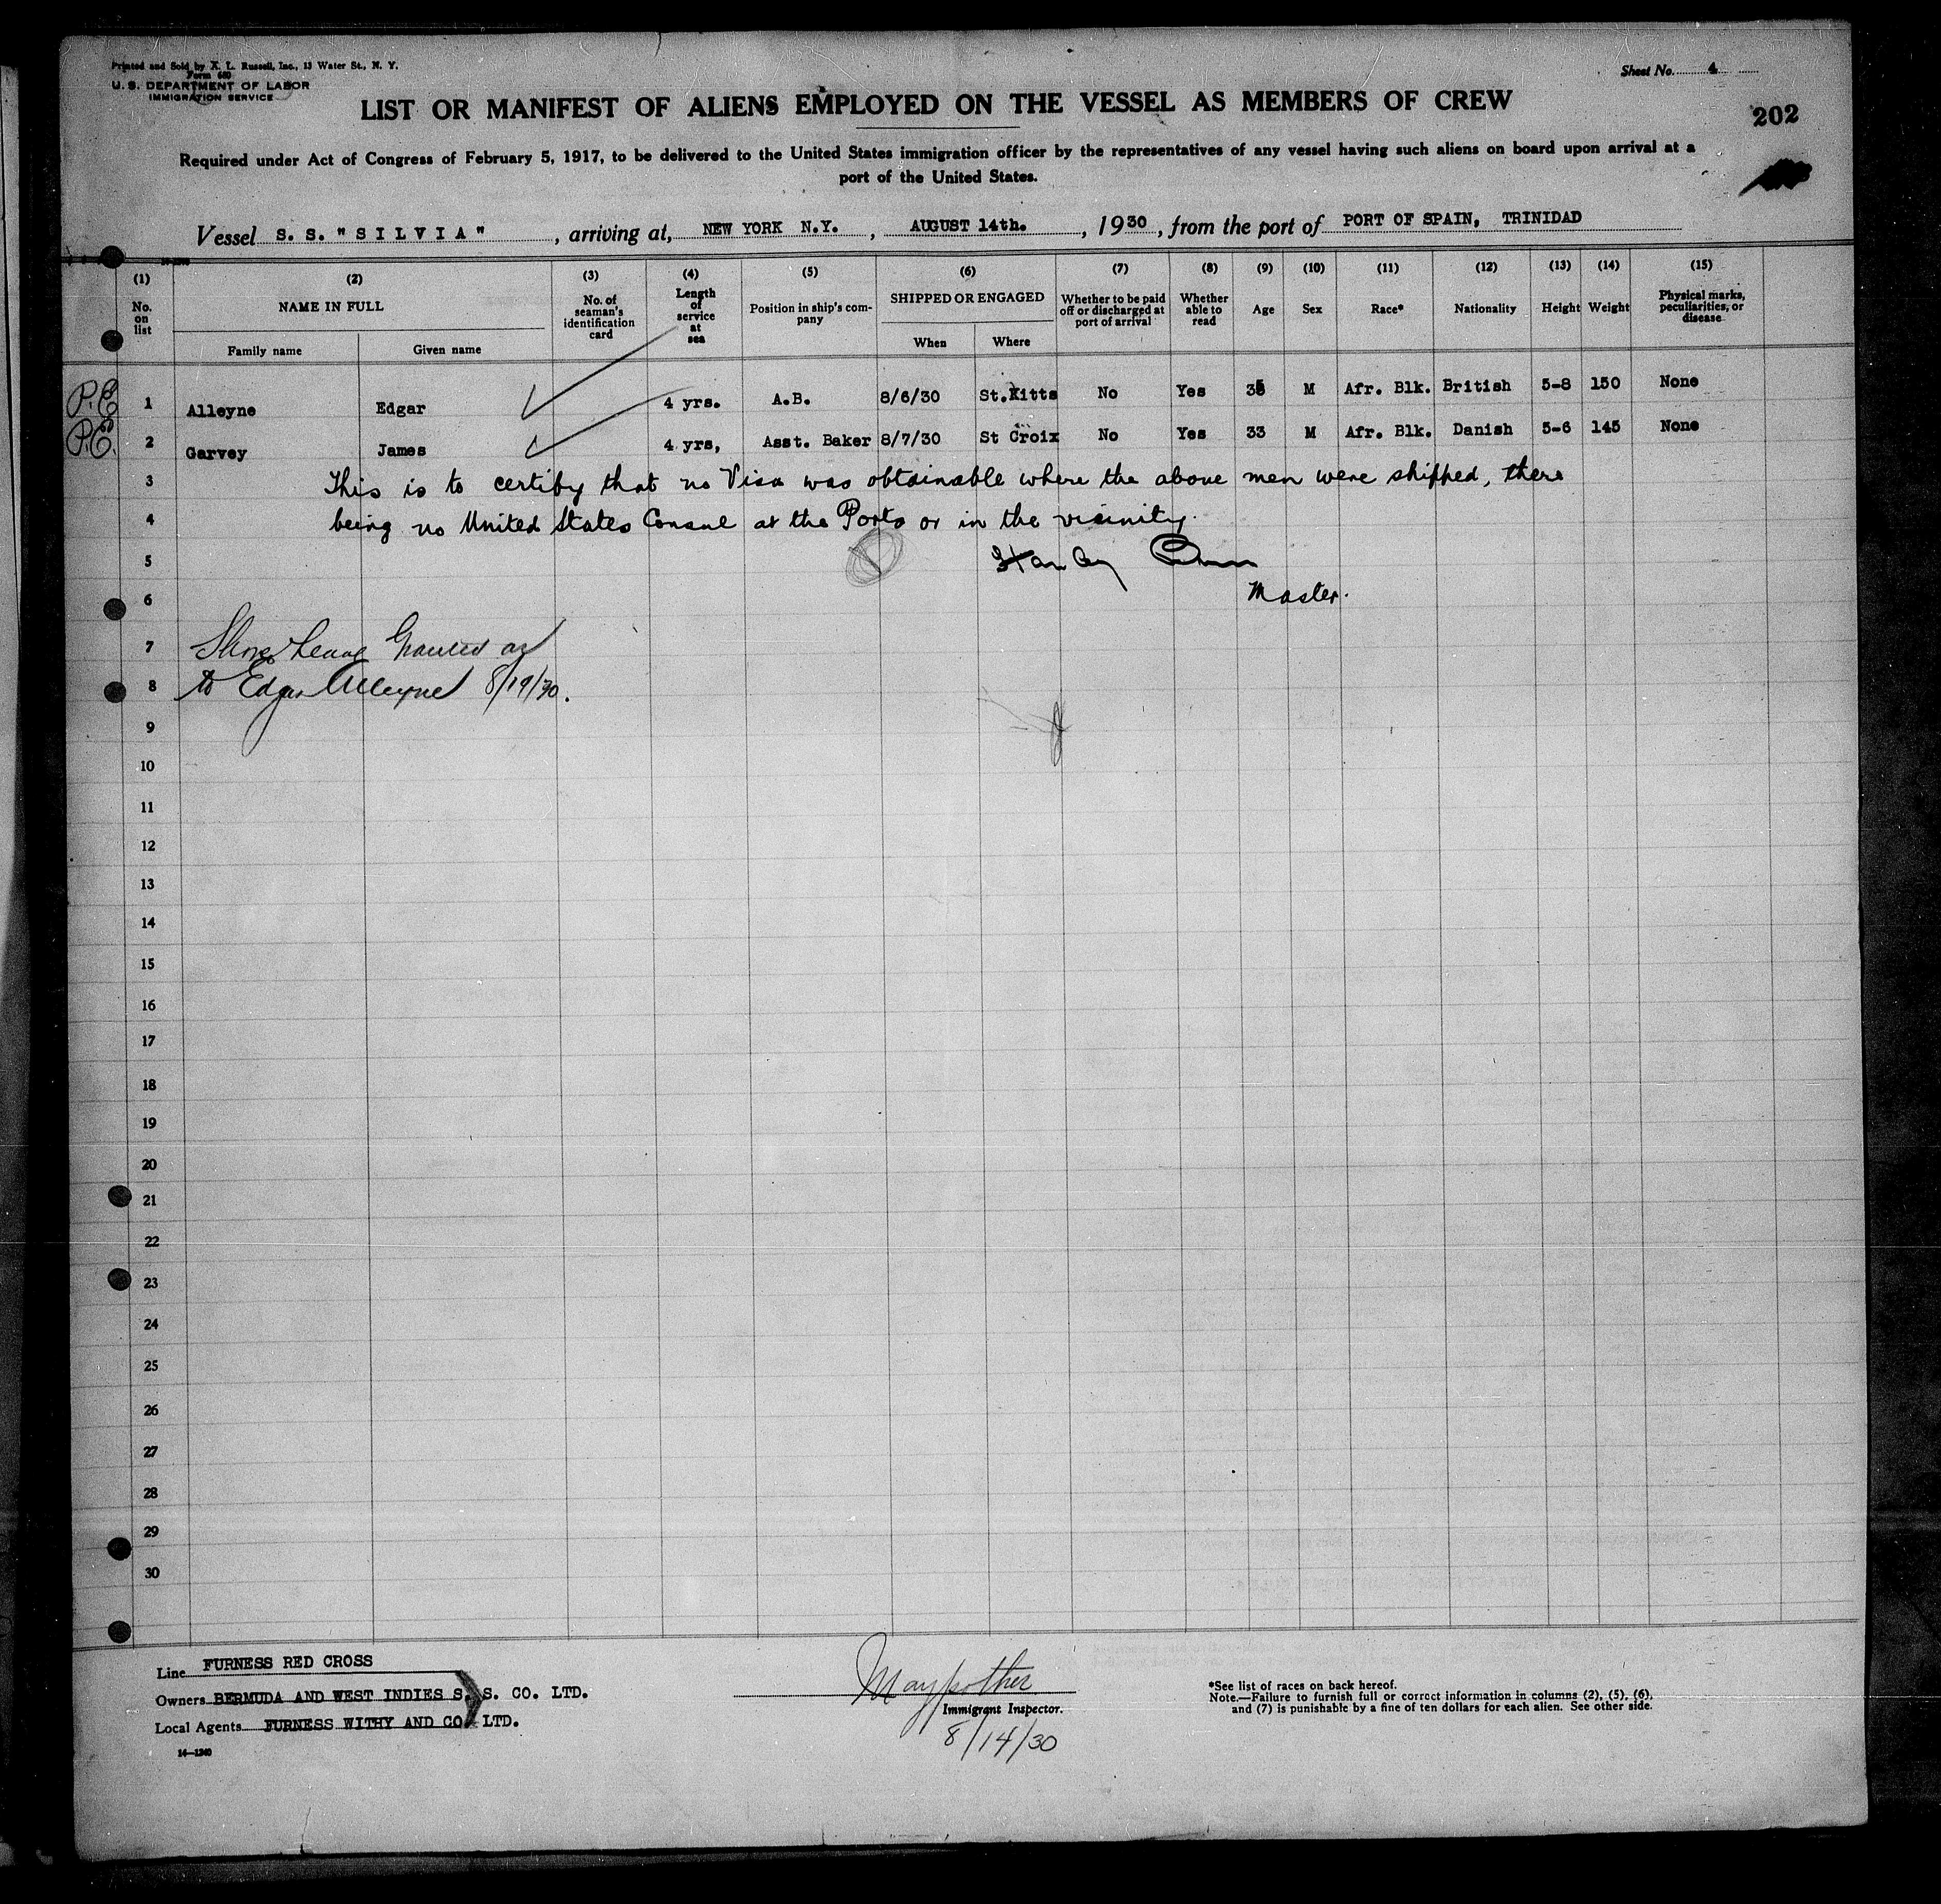 Printed and Sold by X. L. Russell, Inc., 13 Water St., N. Y.
Form 680
U. S. DEPARTMENT OF LABOR
IMMIGRATION SERVICE
Sheet No. 4
LIST OR MANIFEST OF ALIENS EMPLOYED ON THE VESSEL AS MEMBERS OF CREW
202
Required under Act of Congress of February 5, 1917, to be delivered to the United States immigration officer by the representatives of any vessel having such aliens on board upon arrival at a
port of the United States.
Vessel S. S. "SILVIA", arriving at, NEW YORK N.Y., AUGUST 14th., 1930, from the port of PORT OF SPAIN, TRINIDAD
(1) (2) (3) (4) (5) (6) (7) (8) (9) (10) (11) (12) (13) (14) (15)
No. on list
NAME IN FULL
Family name
Given name
No. of seaman's identification card
Length of service at sea
Position in ship's company
SHIPPED OR ENGAGED
When
Where
Whether to be paid off or discharged at port of arrival
Whether able to read
Age
Sex
Race*
Nationality
Height
Weight
Physical marks, peculiarities, or disease
P.E 1 Alleyne Edgar 4 yrs. A.B. 8/6/30 St.Kitts No Yes M Afr. Blk. British 5-8 150 None
P.E. 2 Garvey James 4 yrs, Asst. Baker 8/7/30 St Croix No Yes 33 M Afr. Blk. Danish 5-6 145 None
3 This is to certify that no Visa was obtainable where the above men were shipped, there
4 being no United States Consul at the Ports or in the vicinity.
5 Stanley
6 Master.
7 Shore Leave Granted
8 to Edgar Alleyne 8/19/30.
9
10
11
12
13
14
15
16
17
18
19
20
21
22
23
24
25
26
27
28
29
30
Line FURNESS RED CROSS
Owners BERMUDA AND WEST INDIES S. S. CO. LTD.
Local Agents FURNESS WITHY AND CO. LTD.
14—1240
Maypother
Immigrant Inspector.
8/14/30
*See list of races on back hereof.
Note.—Failure to furnish full or correct information in columns (2), (5), (6),
and (7) is punishable by a fine of ten dollars for each alien. See other side.